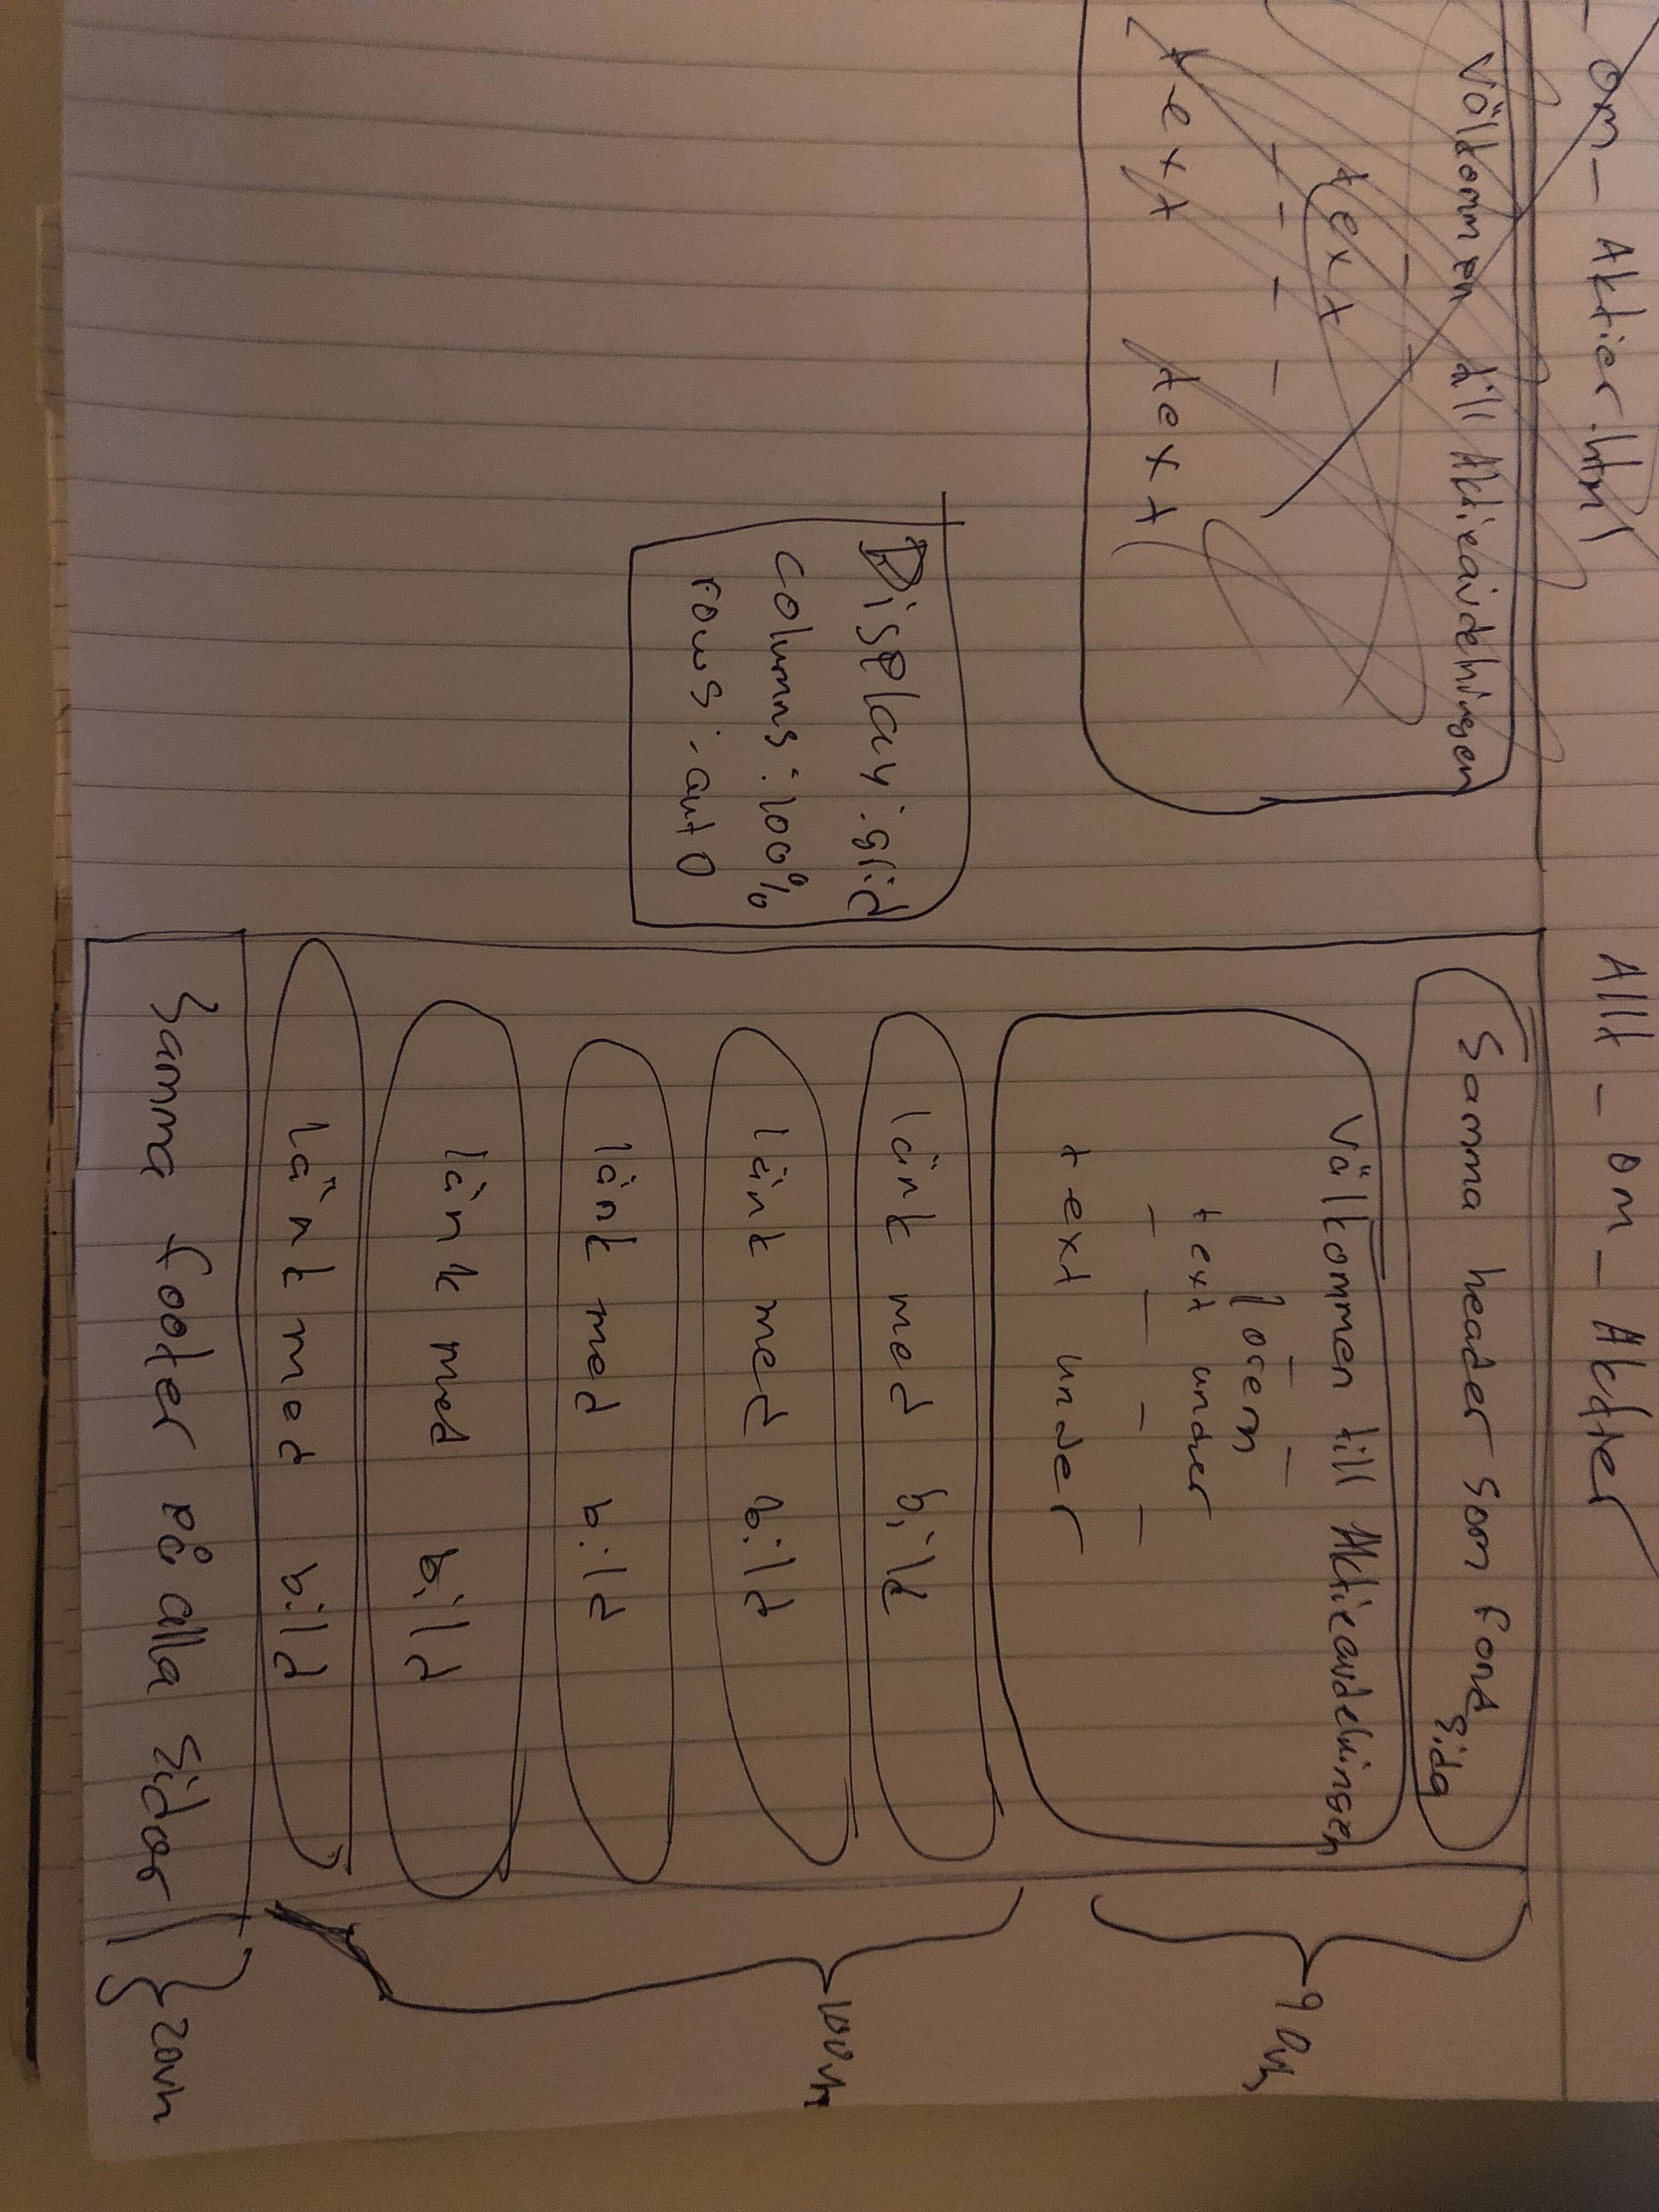 _om_Aktier.html
Välkommen till Aktieavdelningen
text
text text
Display: grid
columns: 100%
rows: auto
Allt_om_Aktier
Samma header som Font
sida
Välkommen till Aktieavdelningen
lorem
text under
text under
90vh
länk med bild
länk med bild
länk med bild
länk med bild
länk med bild
100vh
Samma footer på alla sidor
20vh